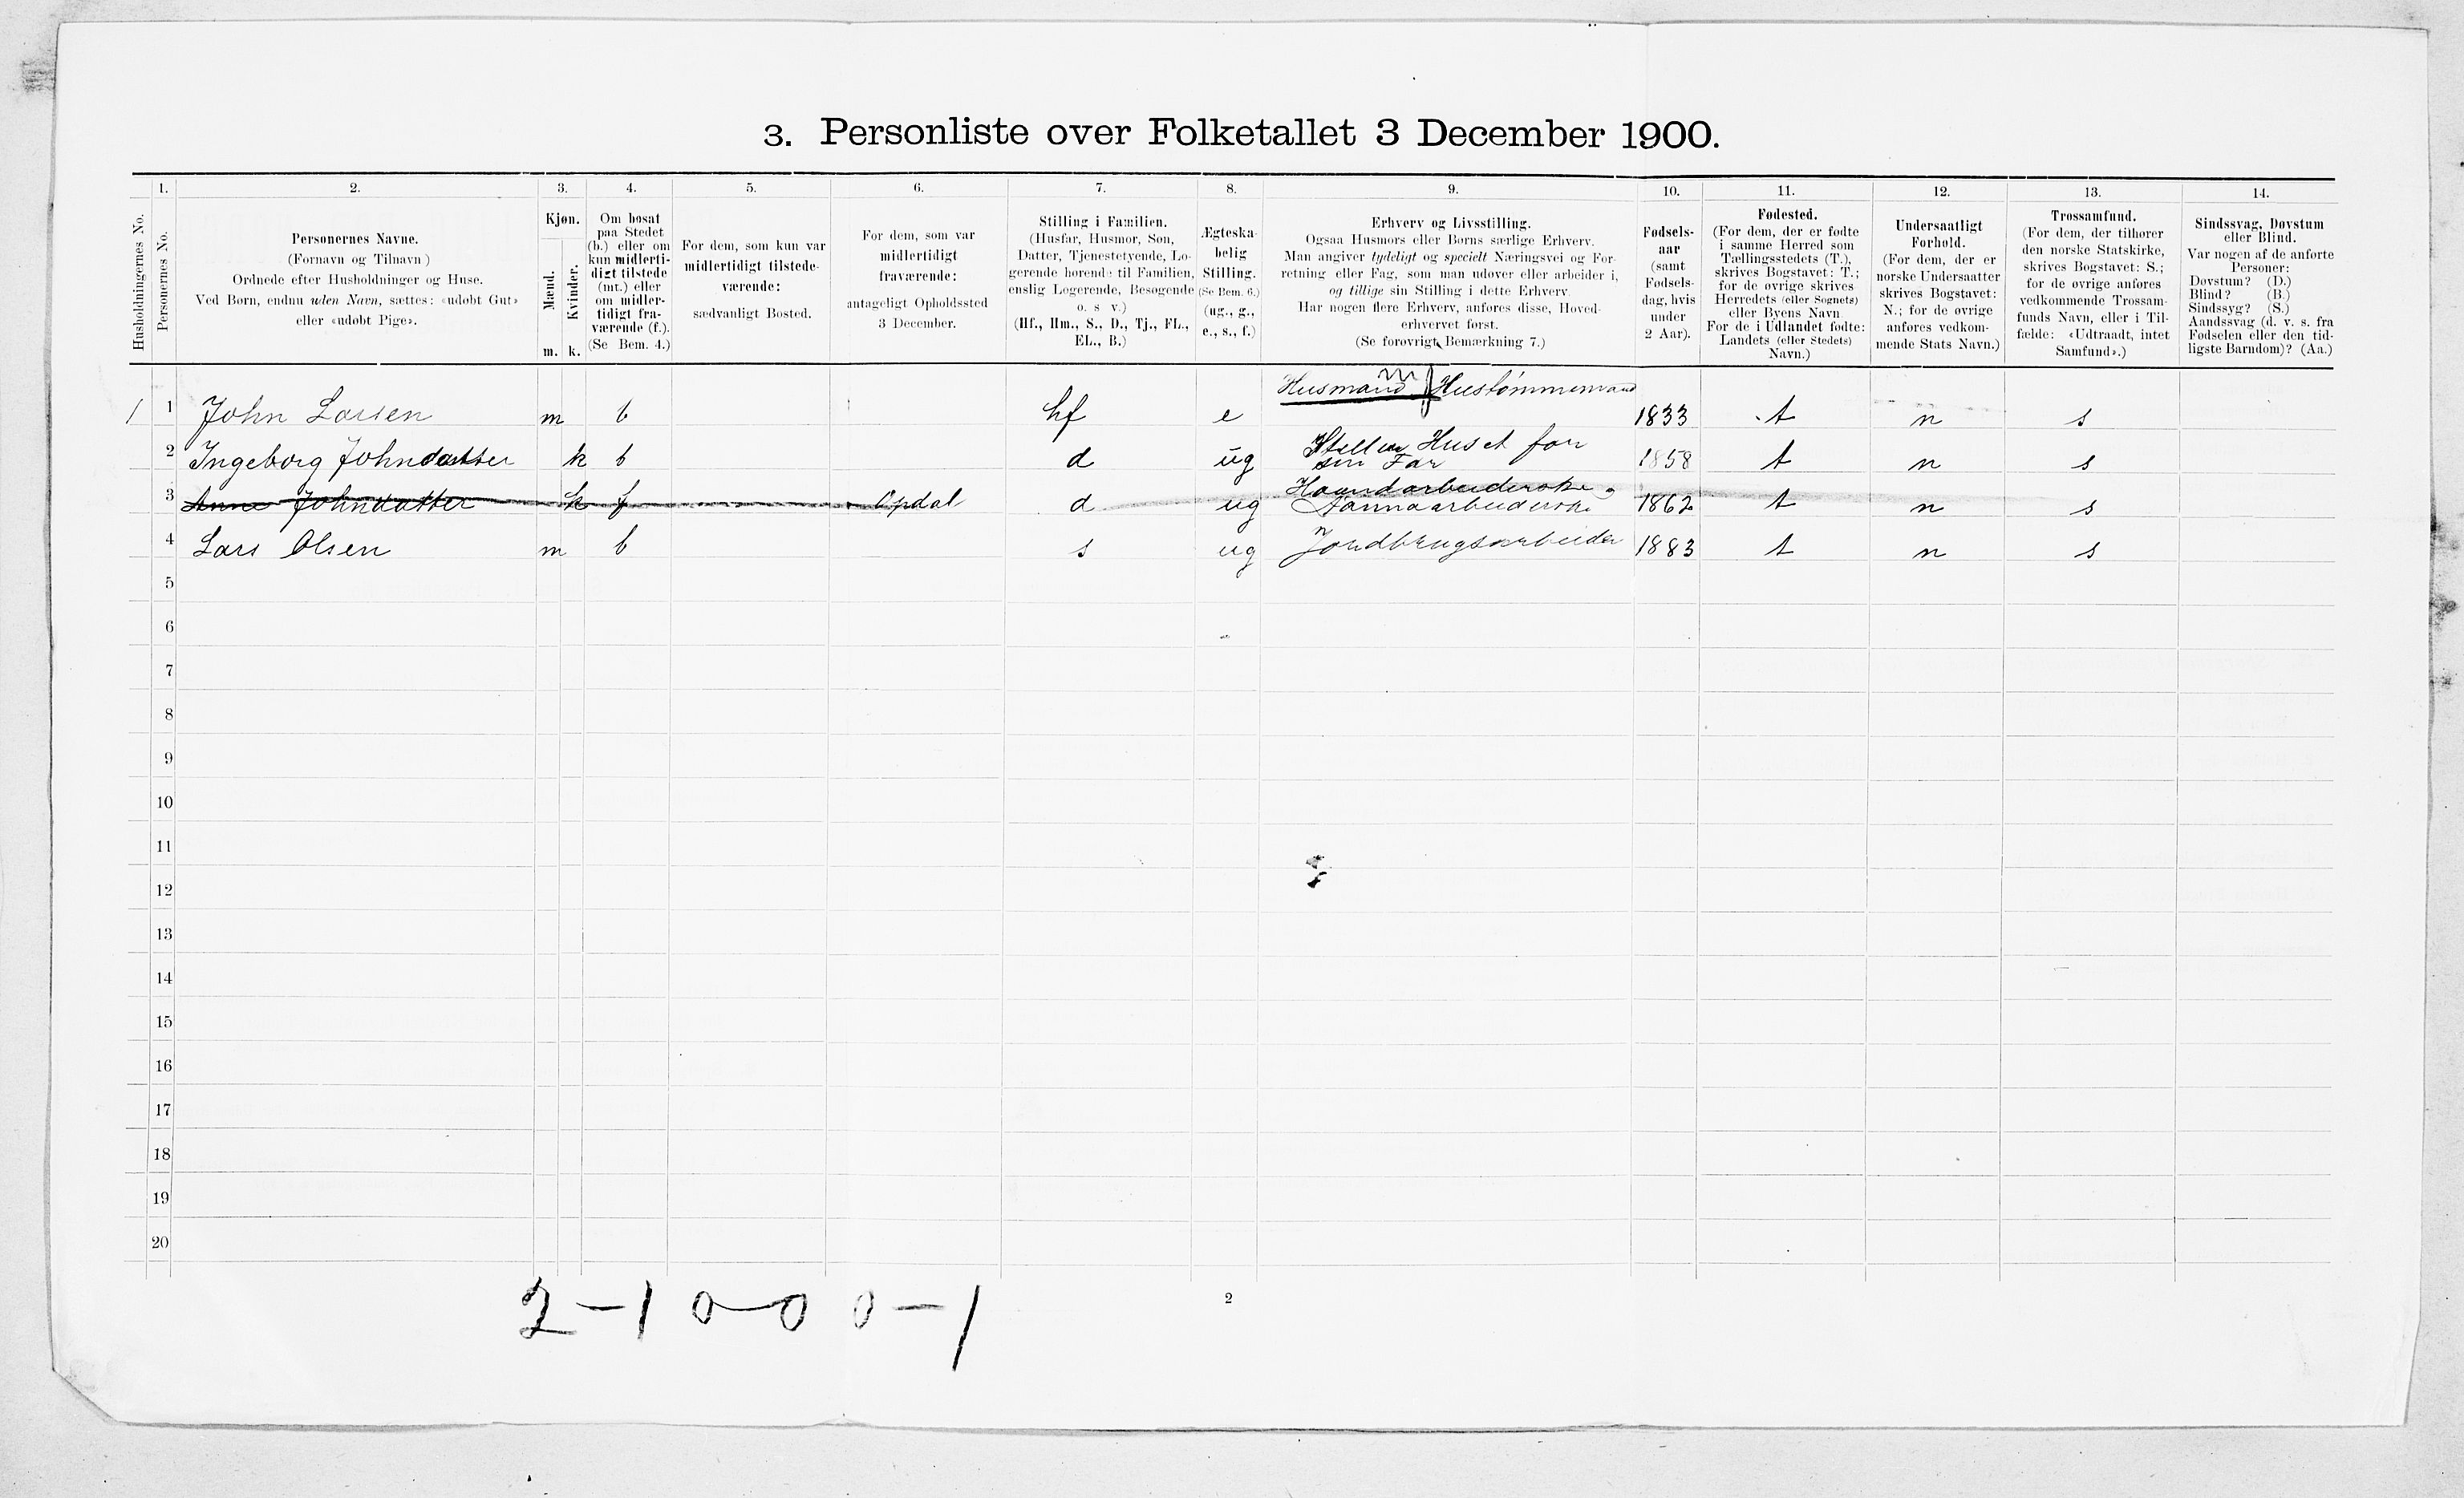 3. Personliste over Folketallet 3 December 1900.
Husholdningernes No.
1.
Personernes No.
2.
Personernes Navne.
(Fornavn og Tilnavn )
Ordnede efter Husholdninger og Huse.
Ved Børn, endnu uden Navn, sættes: «udøbt Gut»
eller «udøbt Pige».
3.
Kjøn.
Mænd.
Kvinder.
m. k.
4.
Om bosat
paa Stedet
(b.) eller om
kun midlerti-
digt tilstede
(mt.) eller
om midler-
tidigt fra-
værende (f.).
(Se Bem. 4.)
5.
For dem, som kun var
midlertidigt tilstede-
værende:
sædvanligt Bosted.
6.
For dem, som var
midlertidigt
fraværende:
antageligt Opholdssted
3 December.
7.
Stilling i Familien.
(Husfar, Husmor, Søn,
Datter, Tjenestetyende, Lo-
gerende hørende til Familien,
enslig Logerende, Besøgende
o. s v.)
(Hf., Hm., S., D., Tj., FL.,
EL., B.)
8.
Ægteska-
belig
Stilling.
(Se Bem. 6.)
(ug., g.,
e., s., f.)
9.
Erhverv og Livsstilling.
Ogsaa Husmors eller Børns særlige Erhverv.
Man angiver tydeligt og specielt Næringsvei og For-
retning eller Fag, som man udøver eller arbeider i,
og tillige sin Stilling i dette Erhverv.
Har nogen flere Erhverv, anføres disse, Hoved-
erhvervet først.
(Se forøvrigt Bemærkning 7.)
10.
Fødsels-
aar
(samt
Fødsels-
dag, hvis
under
2 Aar).
11.
Fødested.
(For dem, der er fødte
i samme Herred som
Tællingsstedets (T.),
skrives Bogstavet: T.;
for de øvrige skrives
Herredets (eller Sognets)
eller Byens Navn
For de i Udlandet fødte:
Landets (eller Stedets)
Navn.)
12.
Undersaatligt
Forhold.
(For dem, der er
norske Undersaatter
skrives Bogstavet:
N.; for de øvrige
anføres vedkom-
mende Stats Navn.)
13.
Trossamfund.
(For dem, der tilhører
den norske Statskirke,
skrives Bogstavet: S.;
for de øvrige anføres
vedkommende Trossam-
funds Navn, eller i Til-
fælde: «Udtraadt, intet
Samfund».)
14.
Sindssvag, Døvstum
eller Blind.
Var nogen af de anførte
Personer:
Døvstum? (D.)
Blind? (B.)
Sindssyg? (S.)
Aandssvag (d. v. s. fra
Fødselen eller den tid-
ligste Barndom)? (Aa.)
1 1 John Larsen m b hf e Husmand Hustømmermand 1833 t n s
2 Ingeborg Johndatter k b d ug Steller Huset for
sin Far 1858 t n s
3 Anne Johndatter k f Opdal d ug Haandarbeiderske 1862 t n s
4 Lars Olsen m b s ug Jordbrugsarbeider 1883 t n s
5
6
7
8
9
10
11
12
13
14
15
16
17
18
19
20
2-1 0-0 0-1
2